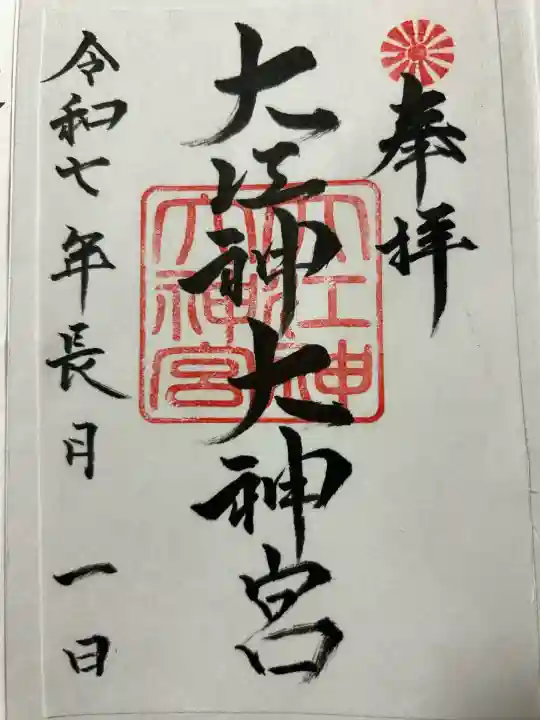 奉拝
大江神大神宮
大江神大神宮
令和七年長月一日